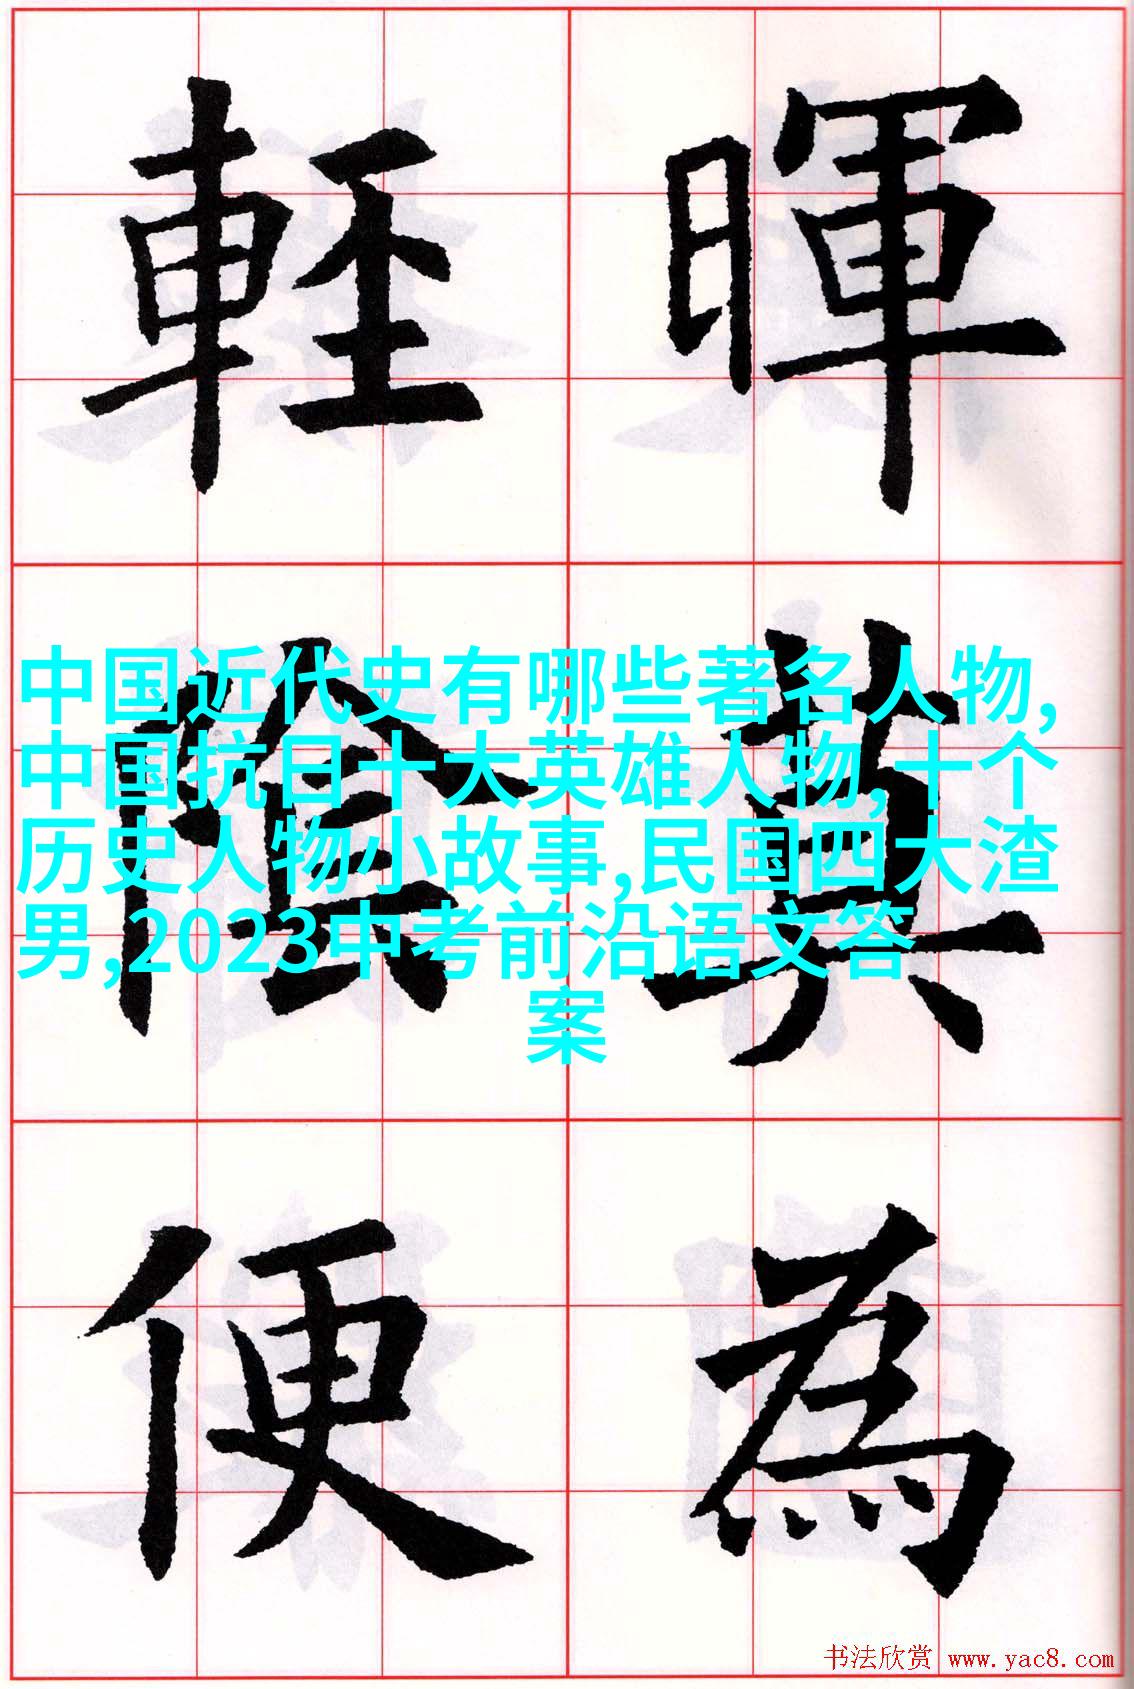 暉莫為
輕陰便
中国近代史有哪些著名人物,
中国抗日十大英雄人物,十个
历史人物小故事,民国四大渣
男,2023中考前沿语文答
案
书法欣赏 www.yac8.com